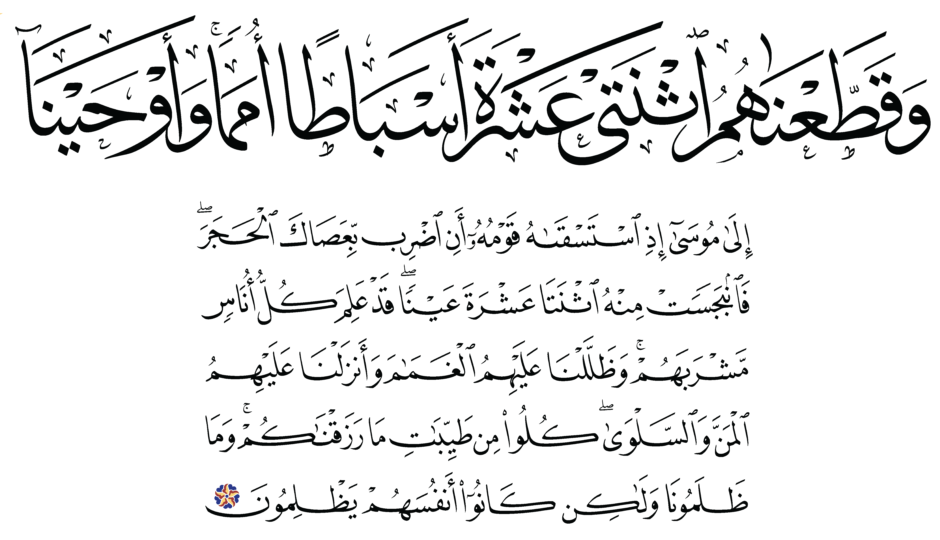 وَقَطَّعْنَٰهُمُ ٱثْنَتَىْ عَشْرَةَ أَسْبَاطًا أُمَمًا ۚ وَأَوْحَيْنَآ
إِلَىٰ مُوسَىٰٓ إِذِ ٱسْتَسْقَىٰهُ قَوْمُهُۥٓ أَنِ ٱضْرِب بِّعَصَاكَ ٱلْحَجَرَ ۖ
فَٱنۢبَجَسَتْ مِنْهُ ٱثْنَتَا عَشْرَةَ عَيْنًا ۖ قَدْ عَلِمَ كُلُّ أُنَاسٍ
مَّشْرَبَهُمْ ۚ وَظَلَّلْنَا عَلَيْهِمُ ٱلْغَمَٰمَ وَأَنزَلْنَا عَلَيْهِمُ
ٱلْمَنَّ وَٱلسَّلْوَىٰ ۖ كُلُوا۟ مِن طَيِّبَٰتِ مَا رَزَقْنَٰكُمْ ۚ وَمَا
ظَلَمُونَا وَلَٰكِن كَانُوٓا۟ أَنفُسَهُمْ يَظْلِمُونَ